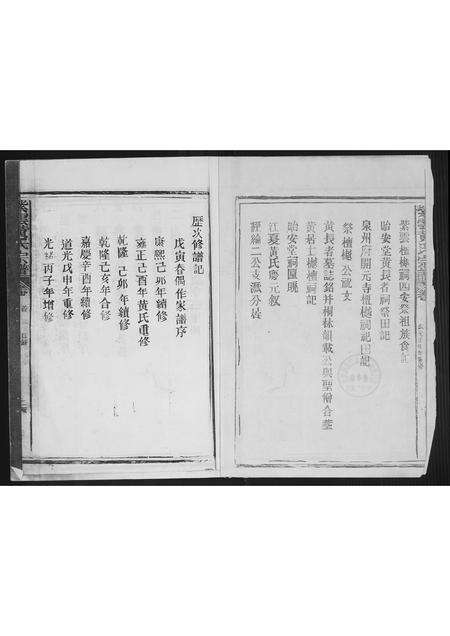 紫雲檀樾祠四安祭祖族食記
貽安堂黃長者祠祭田記
泉州府開元寺檀樾祠祀田記
祭檀樾公祝文
黃長者墓誌銘并桐林韻載公與聖僧合塋
黃居士檀樾祠記
貽安堂祠匾聯
江夏黃氏慶元叙
評綸二公支派分居
歷次修譜記
戊寅春偶作家譜序
康熙己卯年續修
雍正己酉年黃氏重修
乾隆己卯年續修
乾隆己亥年合修
嘉慶辛酉年續修
道光戊申年重修
光緒丙子年增修